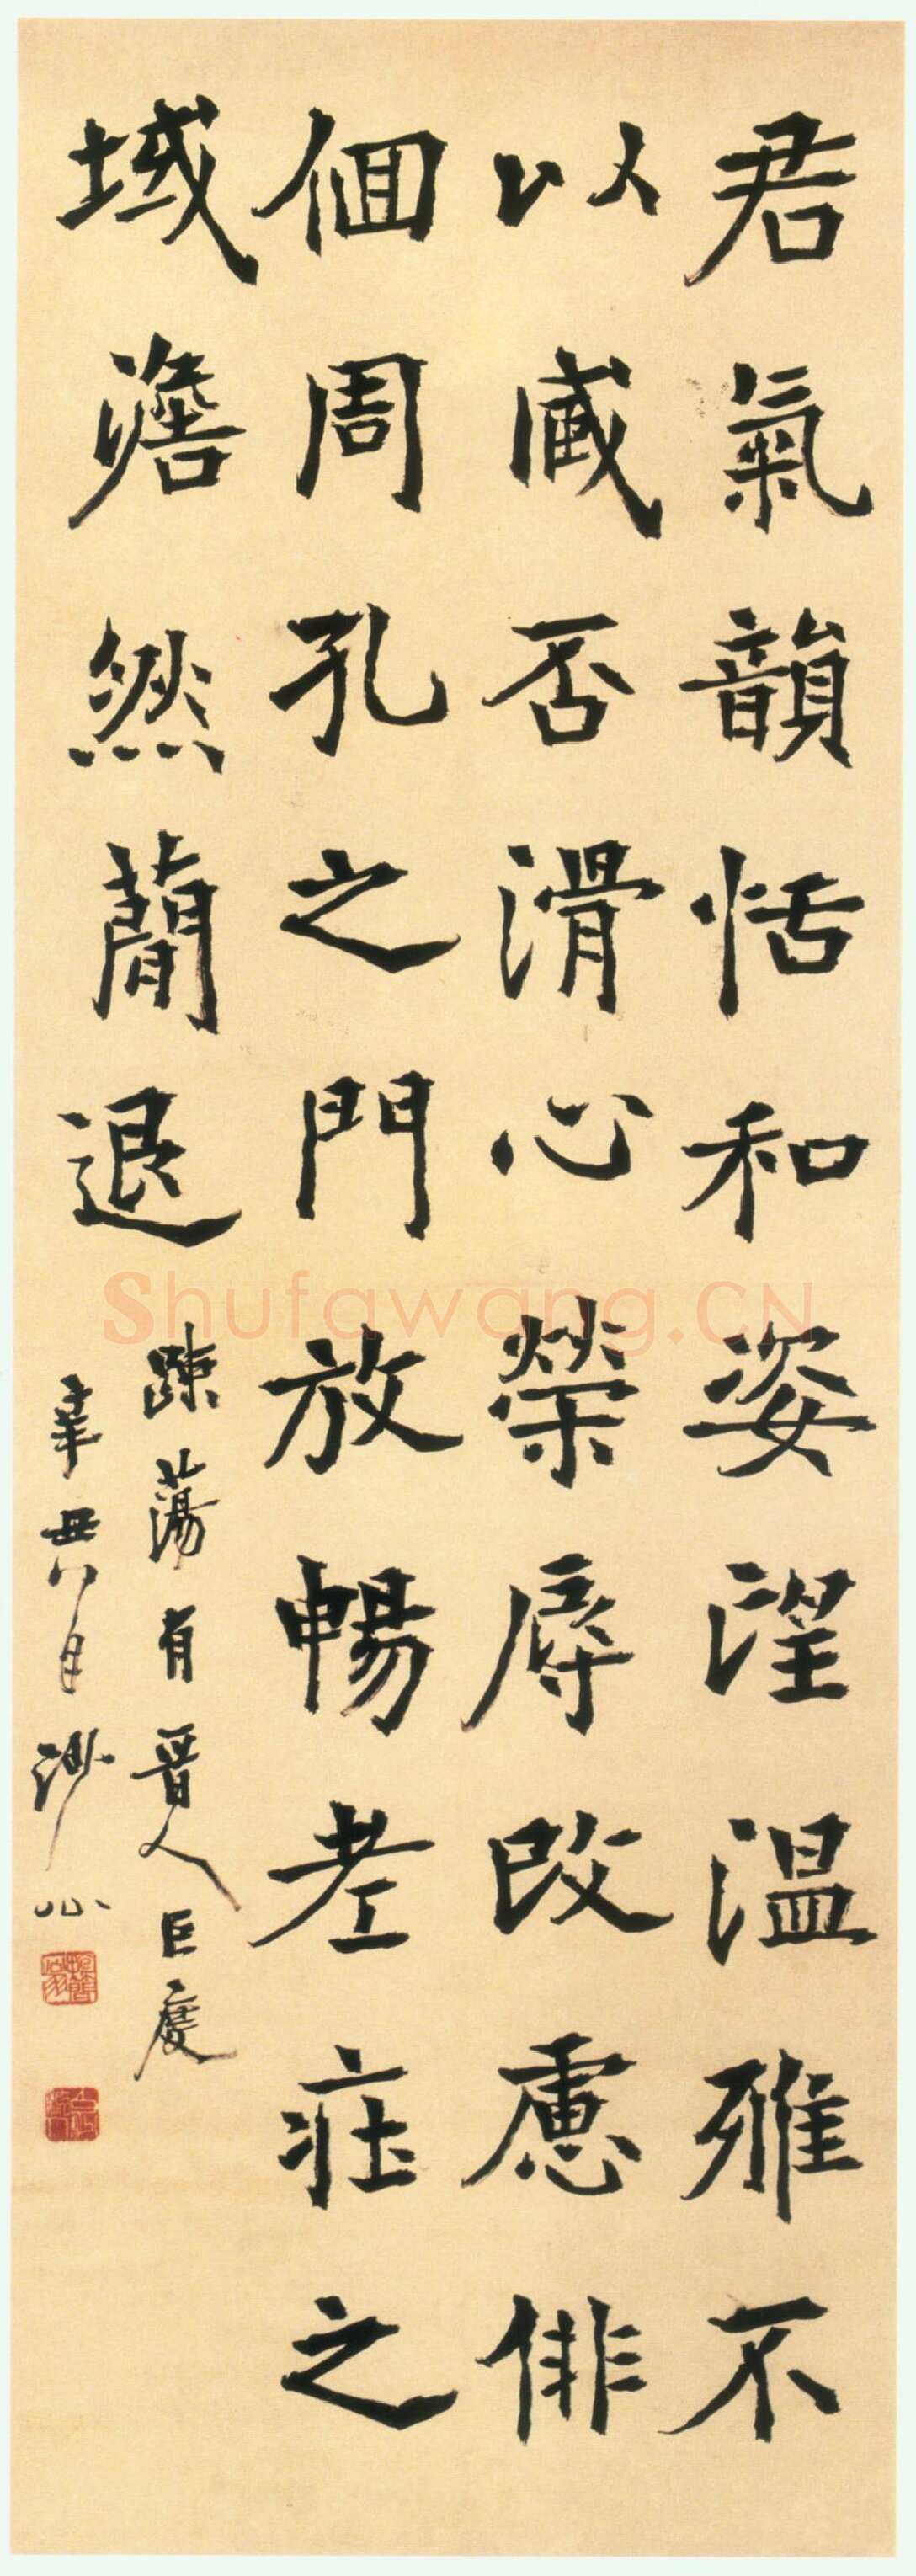 君氣韻恬和姿望温雅不
以臧否滑心榮辱改慮俳
佪周孔之門放暢老莊之
域澹然蕳退
疎蕩有晉人巨度
辛丑六月 沙
Shufawang.CN